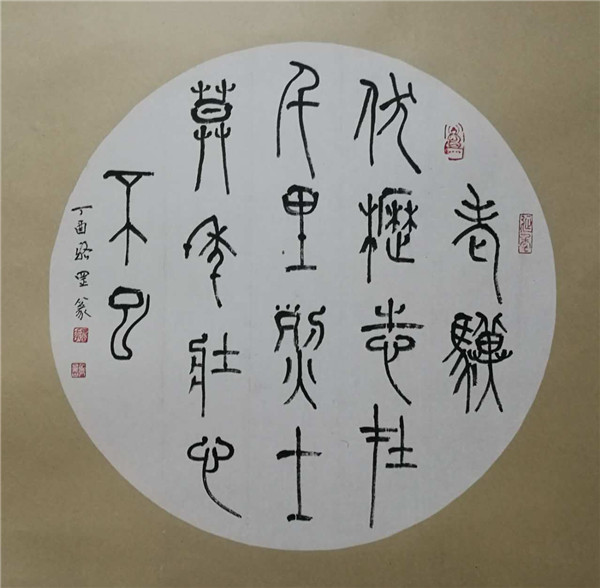 老驥
伏櫪志在
千里烈士
暮年壯心
不已
丁酉